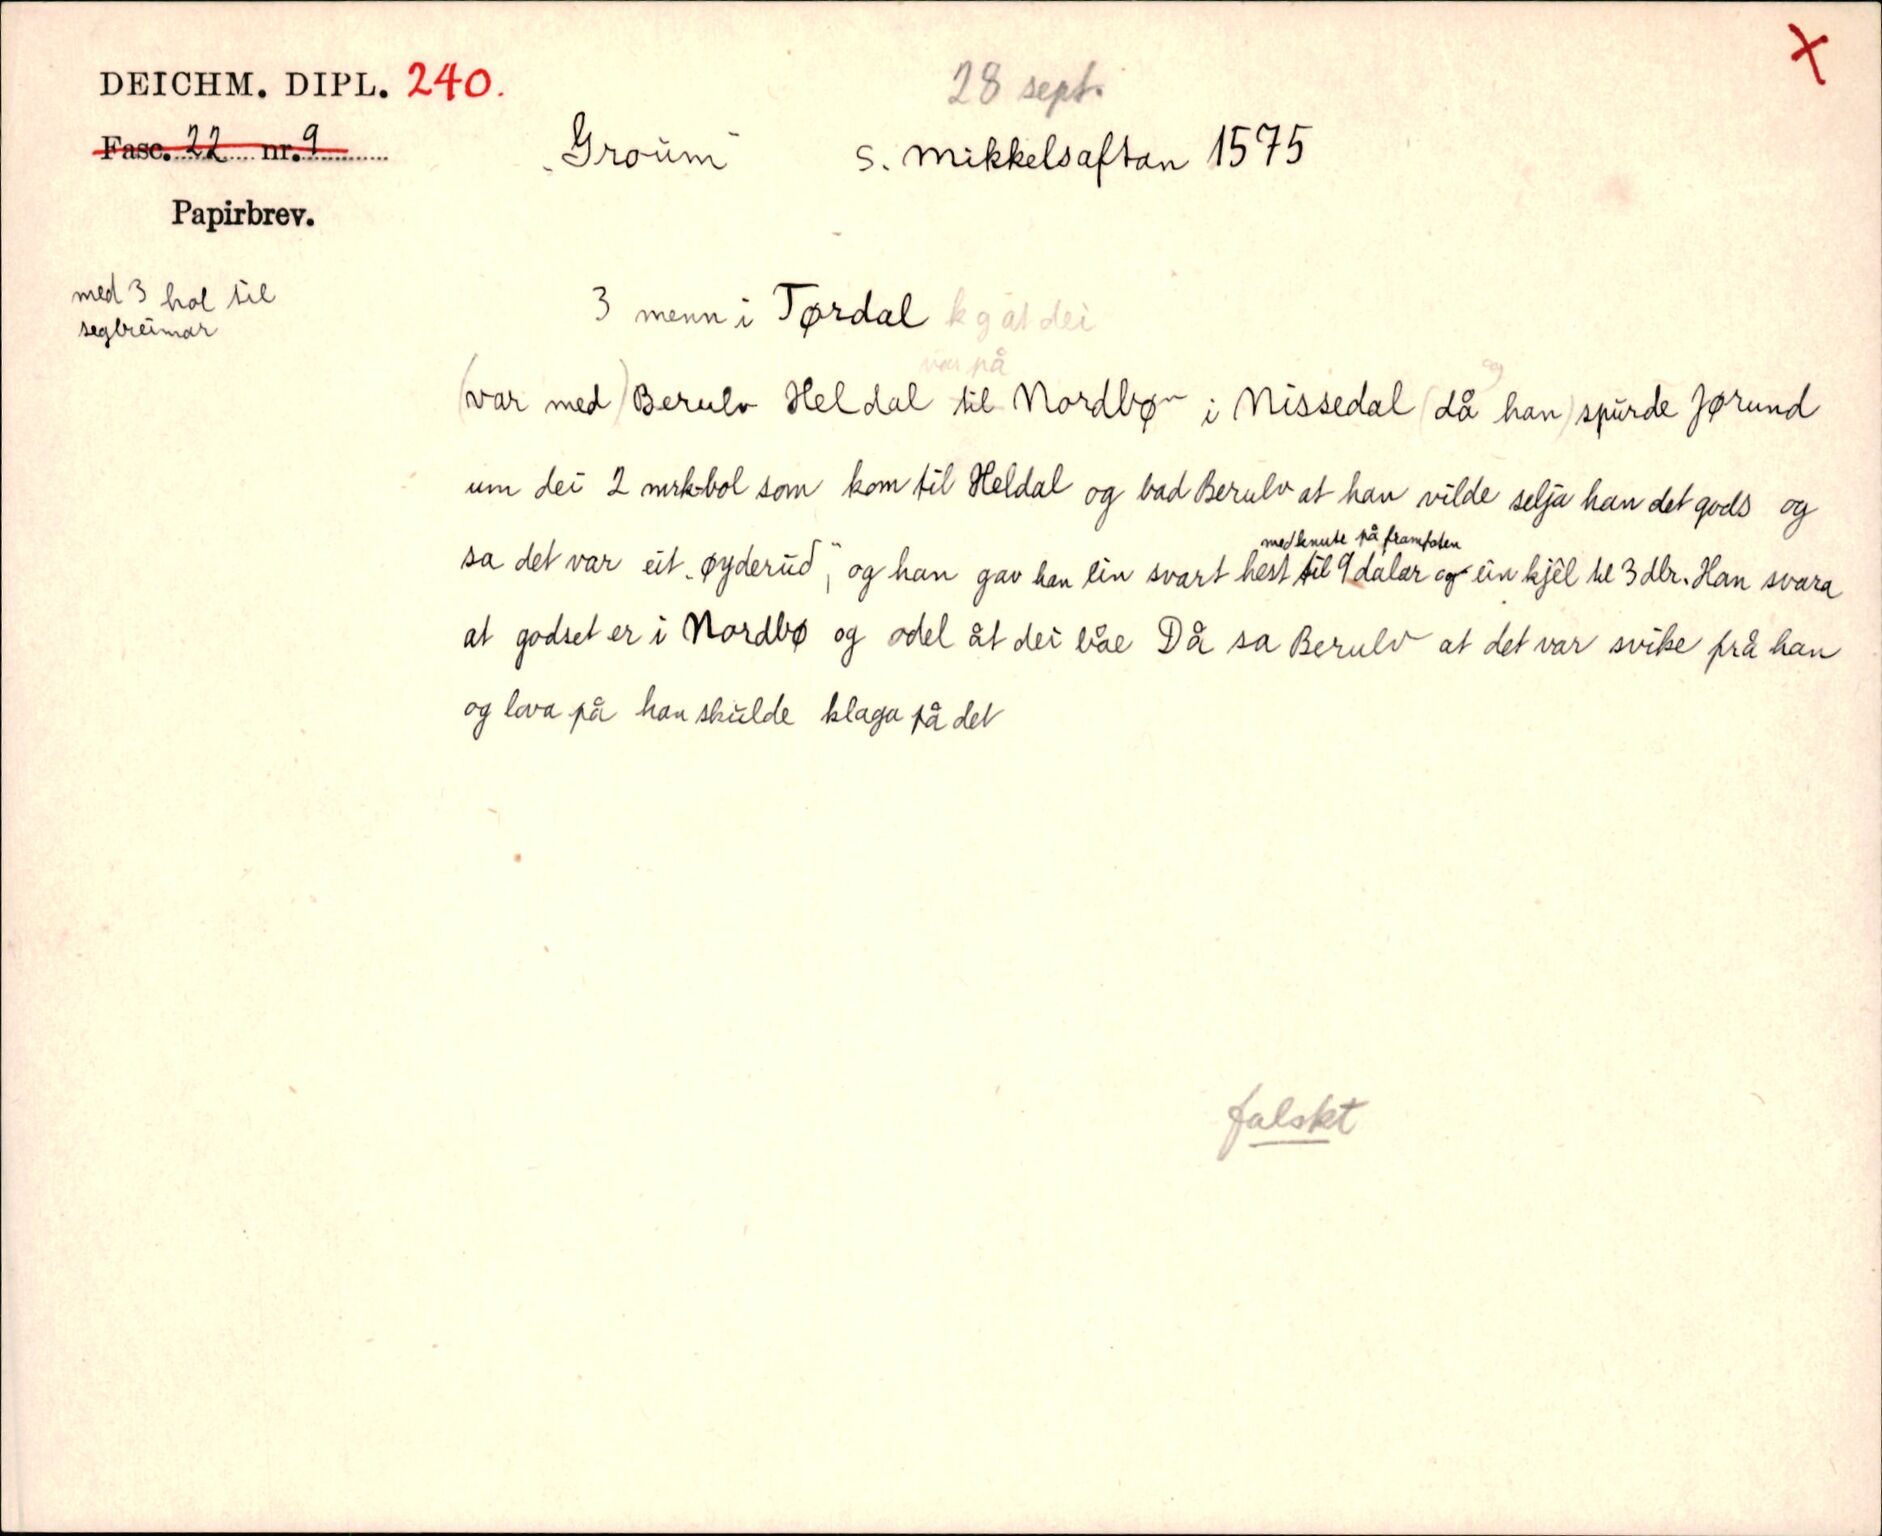 DEICHM. DIPL. 240.
28 sept.
X
Fasc. 22 nr. 9
„Groum“ S. Mikkelsaftan 1575
Papirbrev.
med 3 hol til
segbreimar
3 menn i Tørdal kg at dei
var på
og
(var med) Berulv Heldal til Nordbø i Nissedal (då han) spurde Jørund
um dei 2 mrk-bol som kom til Heldal og bad Berulv at han vilde selja han det gods og
med knute på framfoten
sa det var eit „øyderud“, og han gav han ein svart hest til 9 dalar og ein kjel til 3 dlr. Han svara
at godset er i Nordbø og odel åt dei båe Då sa Berulv at det var svike frå han
og lova på han skulde klaga på det
falskt